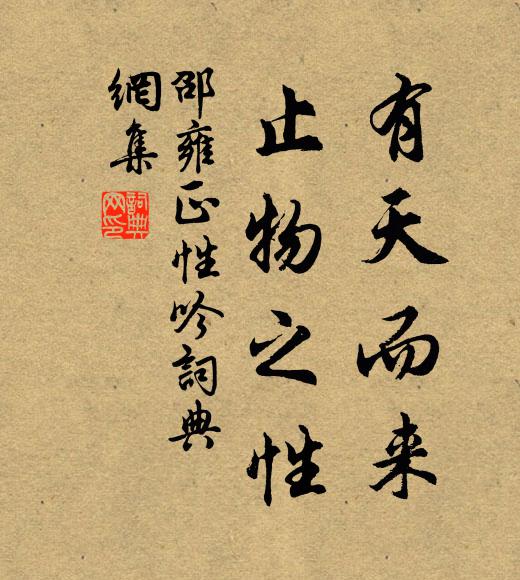 有天而来
止物之性
邵雍正性吟詞典
網集
詞典
网印